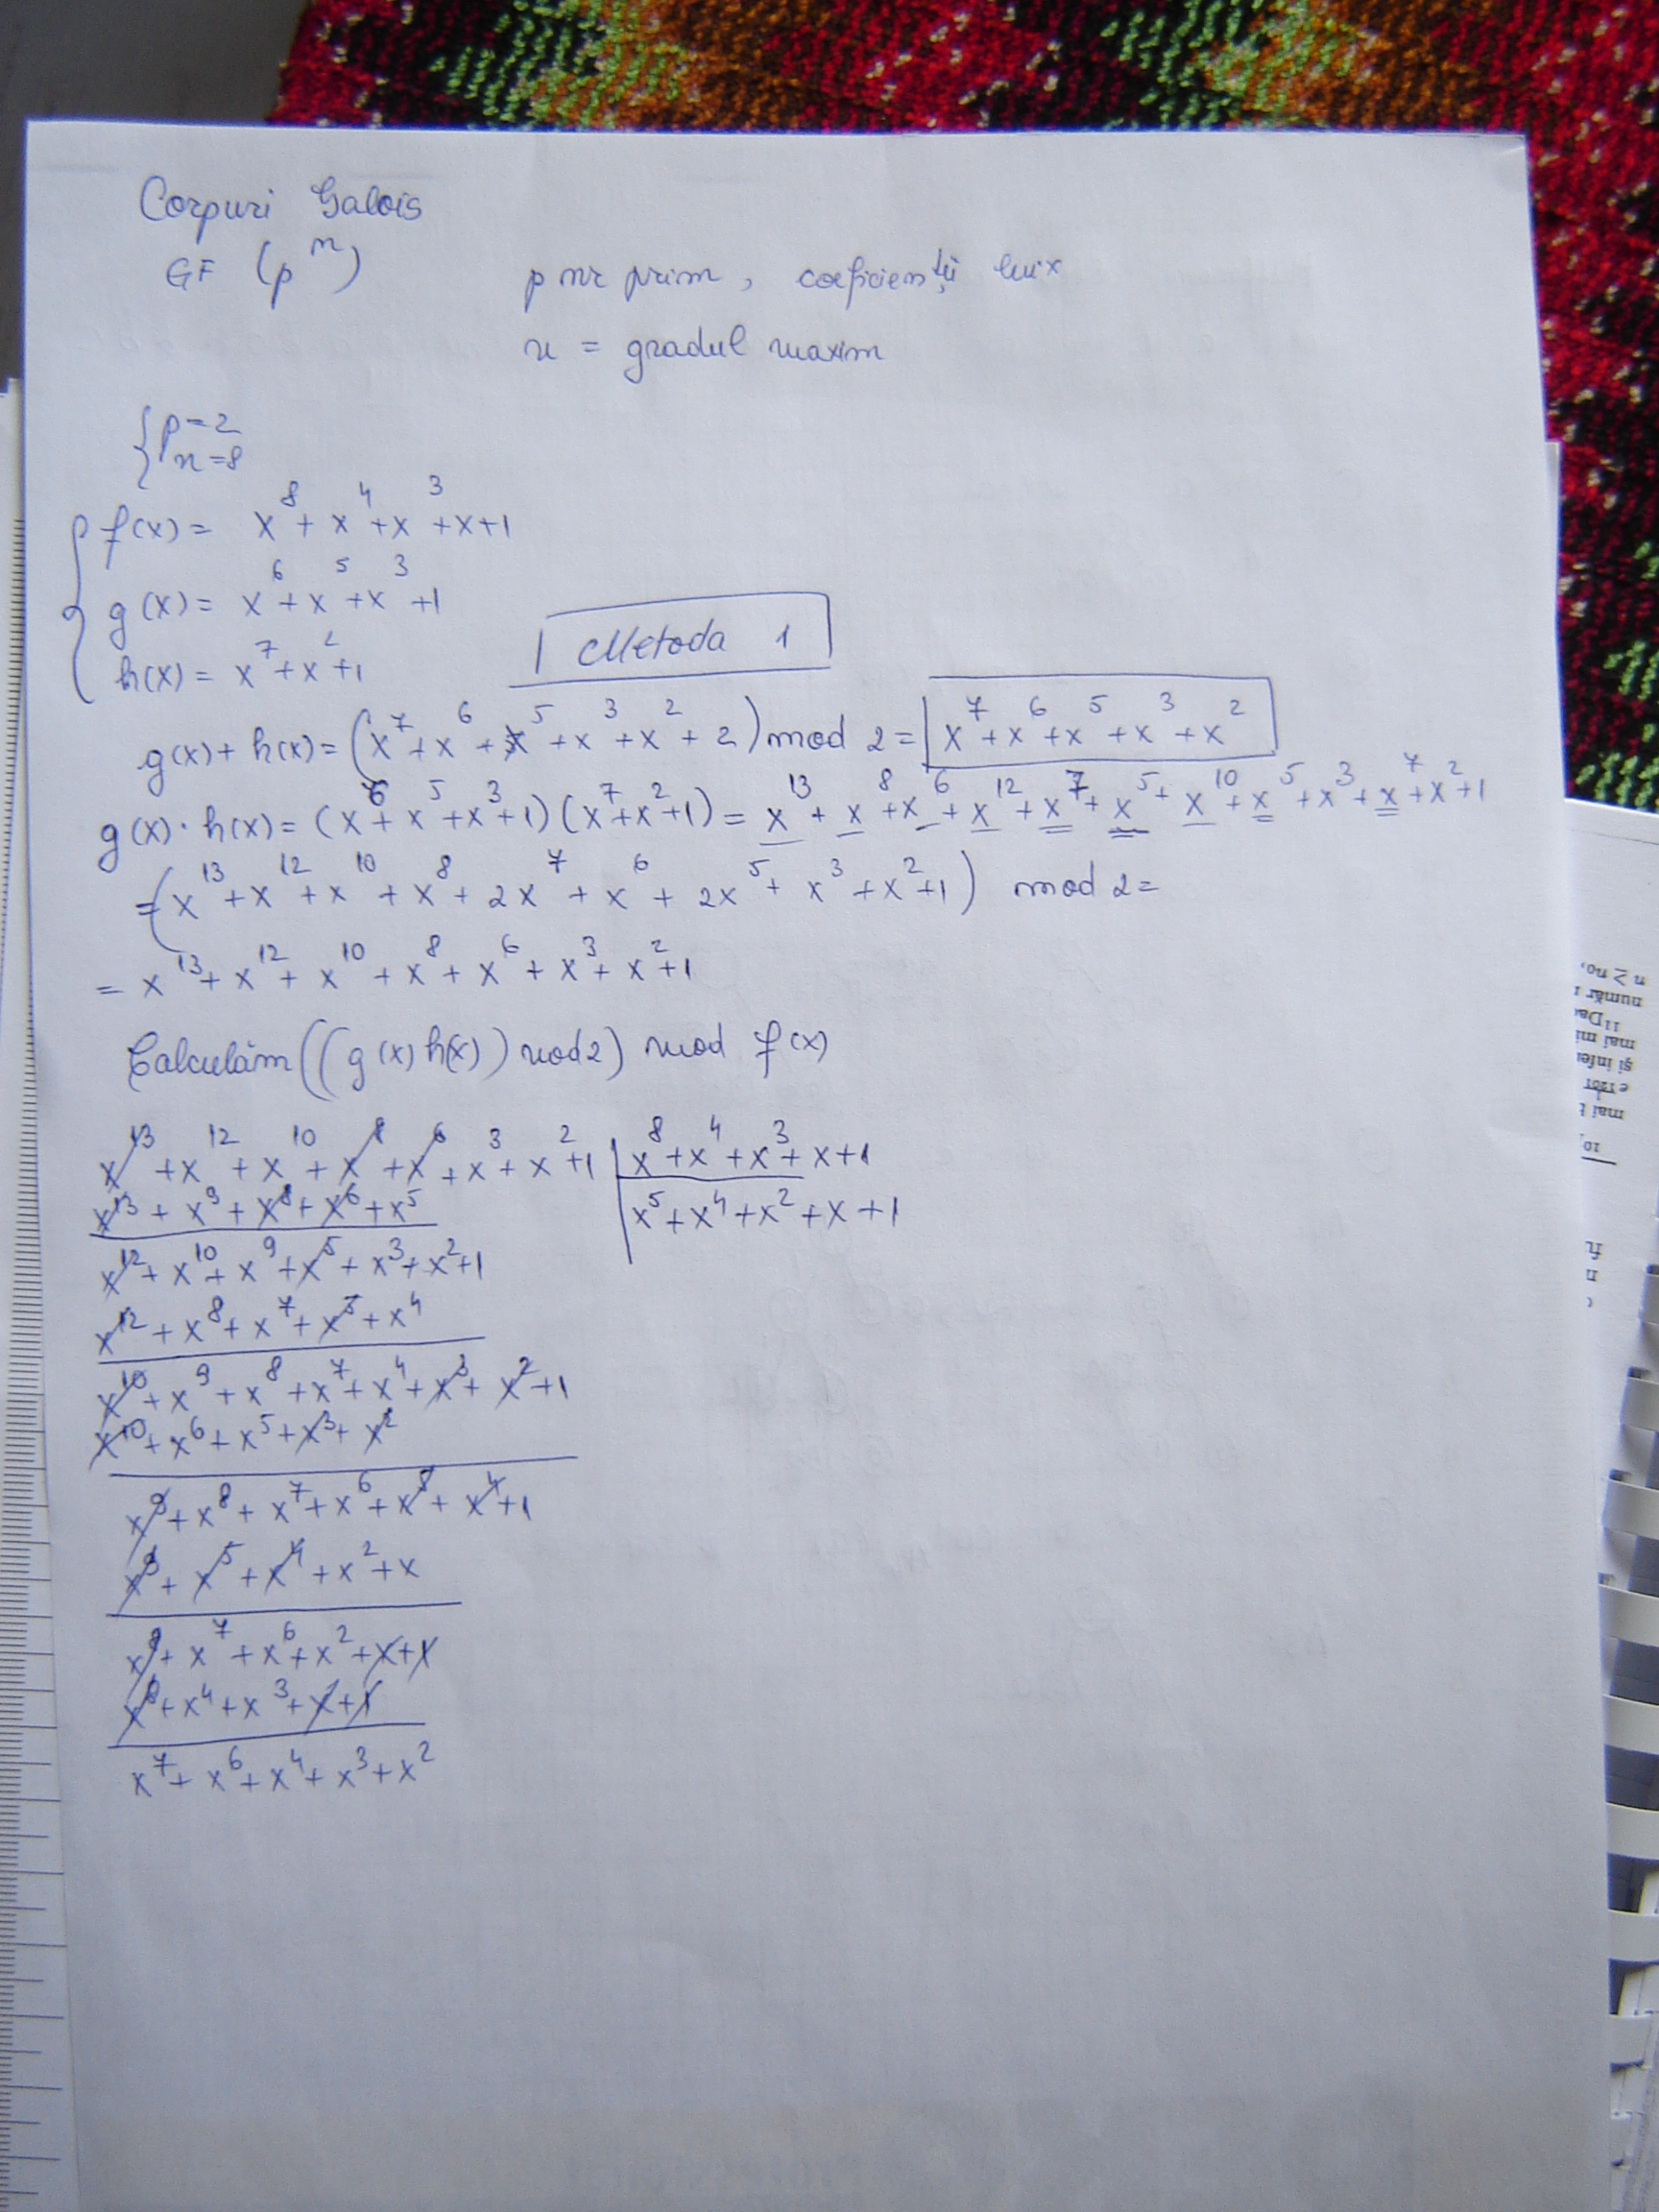 Corpuri Galois
GF (p^n)   p nr prim, coeficienții lui x
n = gradul maxim
{ p=2
n=8
{ f(x) = x^8 + x^4 + x^3 + x + 1
g(x) = x^6 + x^5 + x^3 + 1
h(x) = x^7 + x^2 + 1
Metoda 1
g(x) + h(x) = (x^7 + x^6 + x^5 + x^3 + x^2 + 2) mod 2 = x^7 + x^6 + x^5 + x^3 + x^2
g(x) · h(x) = (x^6 + x^5 + x^3 + 1)(x^7 + x^2 + 1) = x^13 + x^8 + x^6 + x^12 + x^7 + x^5 + x^10 + x^5 + x^3 + x^7 + x^2 + 1
= (x^13 + x^12 + x^10 + x^8 + 2x^7 + x^6 + 2x^5 + x^3 + x^2 + 1) mod 2 =
= x^13 + x^12 + x^10 + x^8 + x^6 + x^3 + x^2 + 1
Calculăm ((g(x) h(x)) mod 2) mod f(x)
x^13 + x^12 + x^10 + x^8 + x^6 + x^3 + x^2 + 1 | x^8 + x^4 + x^3 + x + 1
x^13 + x^9 + x^8 + x^6 + x^5 | x^5 + x^4 + x^2 + x + 1
x^12 + x^10 + x^9 + x^5 + x^3 + x^2 + 1
x^12 + x^8 + x^7 + x^5 + x^4
x^10 + x^9 + x^8 + x^7 + x^4 + x^3 + x^2 + 1
x^10 + x^6 + x^5 + x^3 + x^2
x^9 + x^8 + x^7 + x^6 + x^5 + x^4 + 1
x^9 + x^5 + x^4 + x^2 + x
x^8 + x^7 + x^6 + x^2 + x + 1
x^8 + x^4 + x^3 + x + 1
x^7 + x^6 + x^4 + x^3 + x^2
n ≥ no,
număr
11Dac
mai mi
și infe
mai